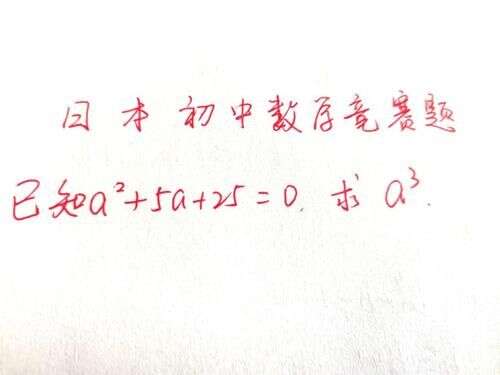 日本初中数学竞赛题
已知a²+5a+25=0, 求a³.